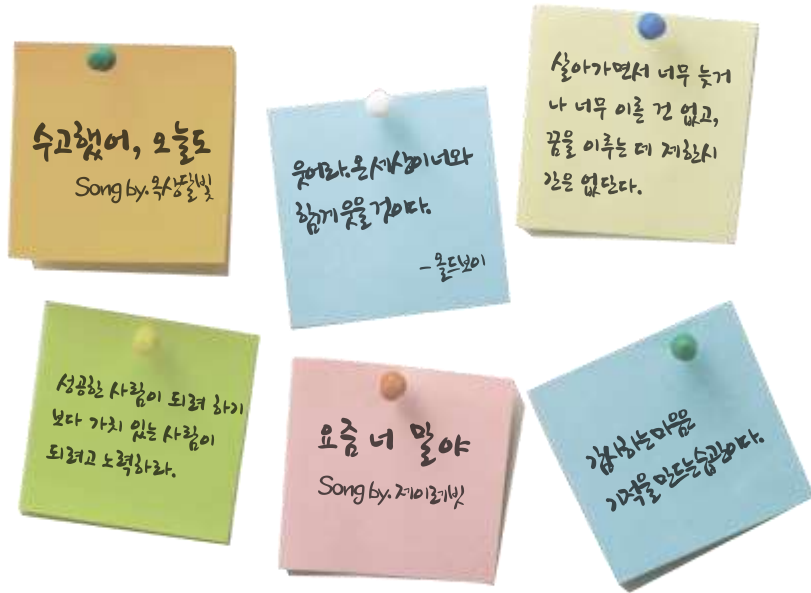 수고했어, 오늘도
Song by. 옥상달빛
웃어라. 온 세상이 너와
함께 웃을 것이다.
- 올드보이
살아가면서 너무 늦거
나 너무 이른 건 없고,
꿈을 이루는 데 제한시
간은 없단다.
성공한 사람이 되려 하기
보다 가치 있는 사람이
되려고 노력하라.
요즘 너 말야
Song by. 제이레빗
감사하는 마음은
기적을 만드는 습관이다.